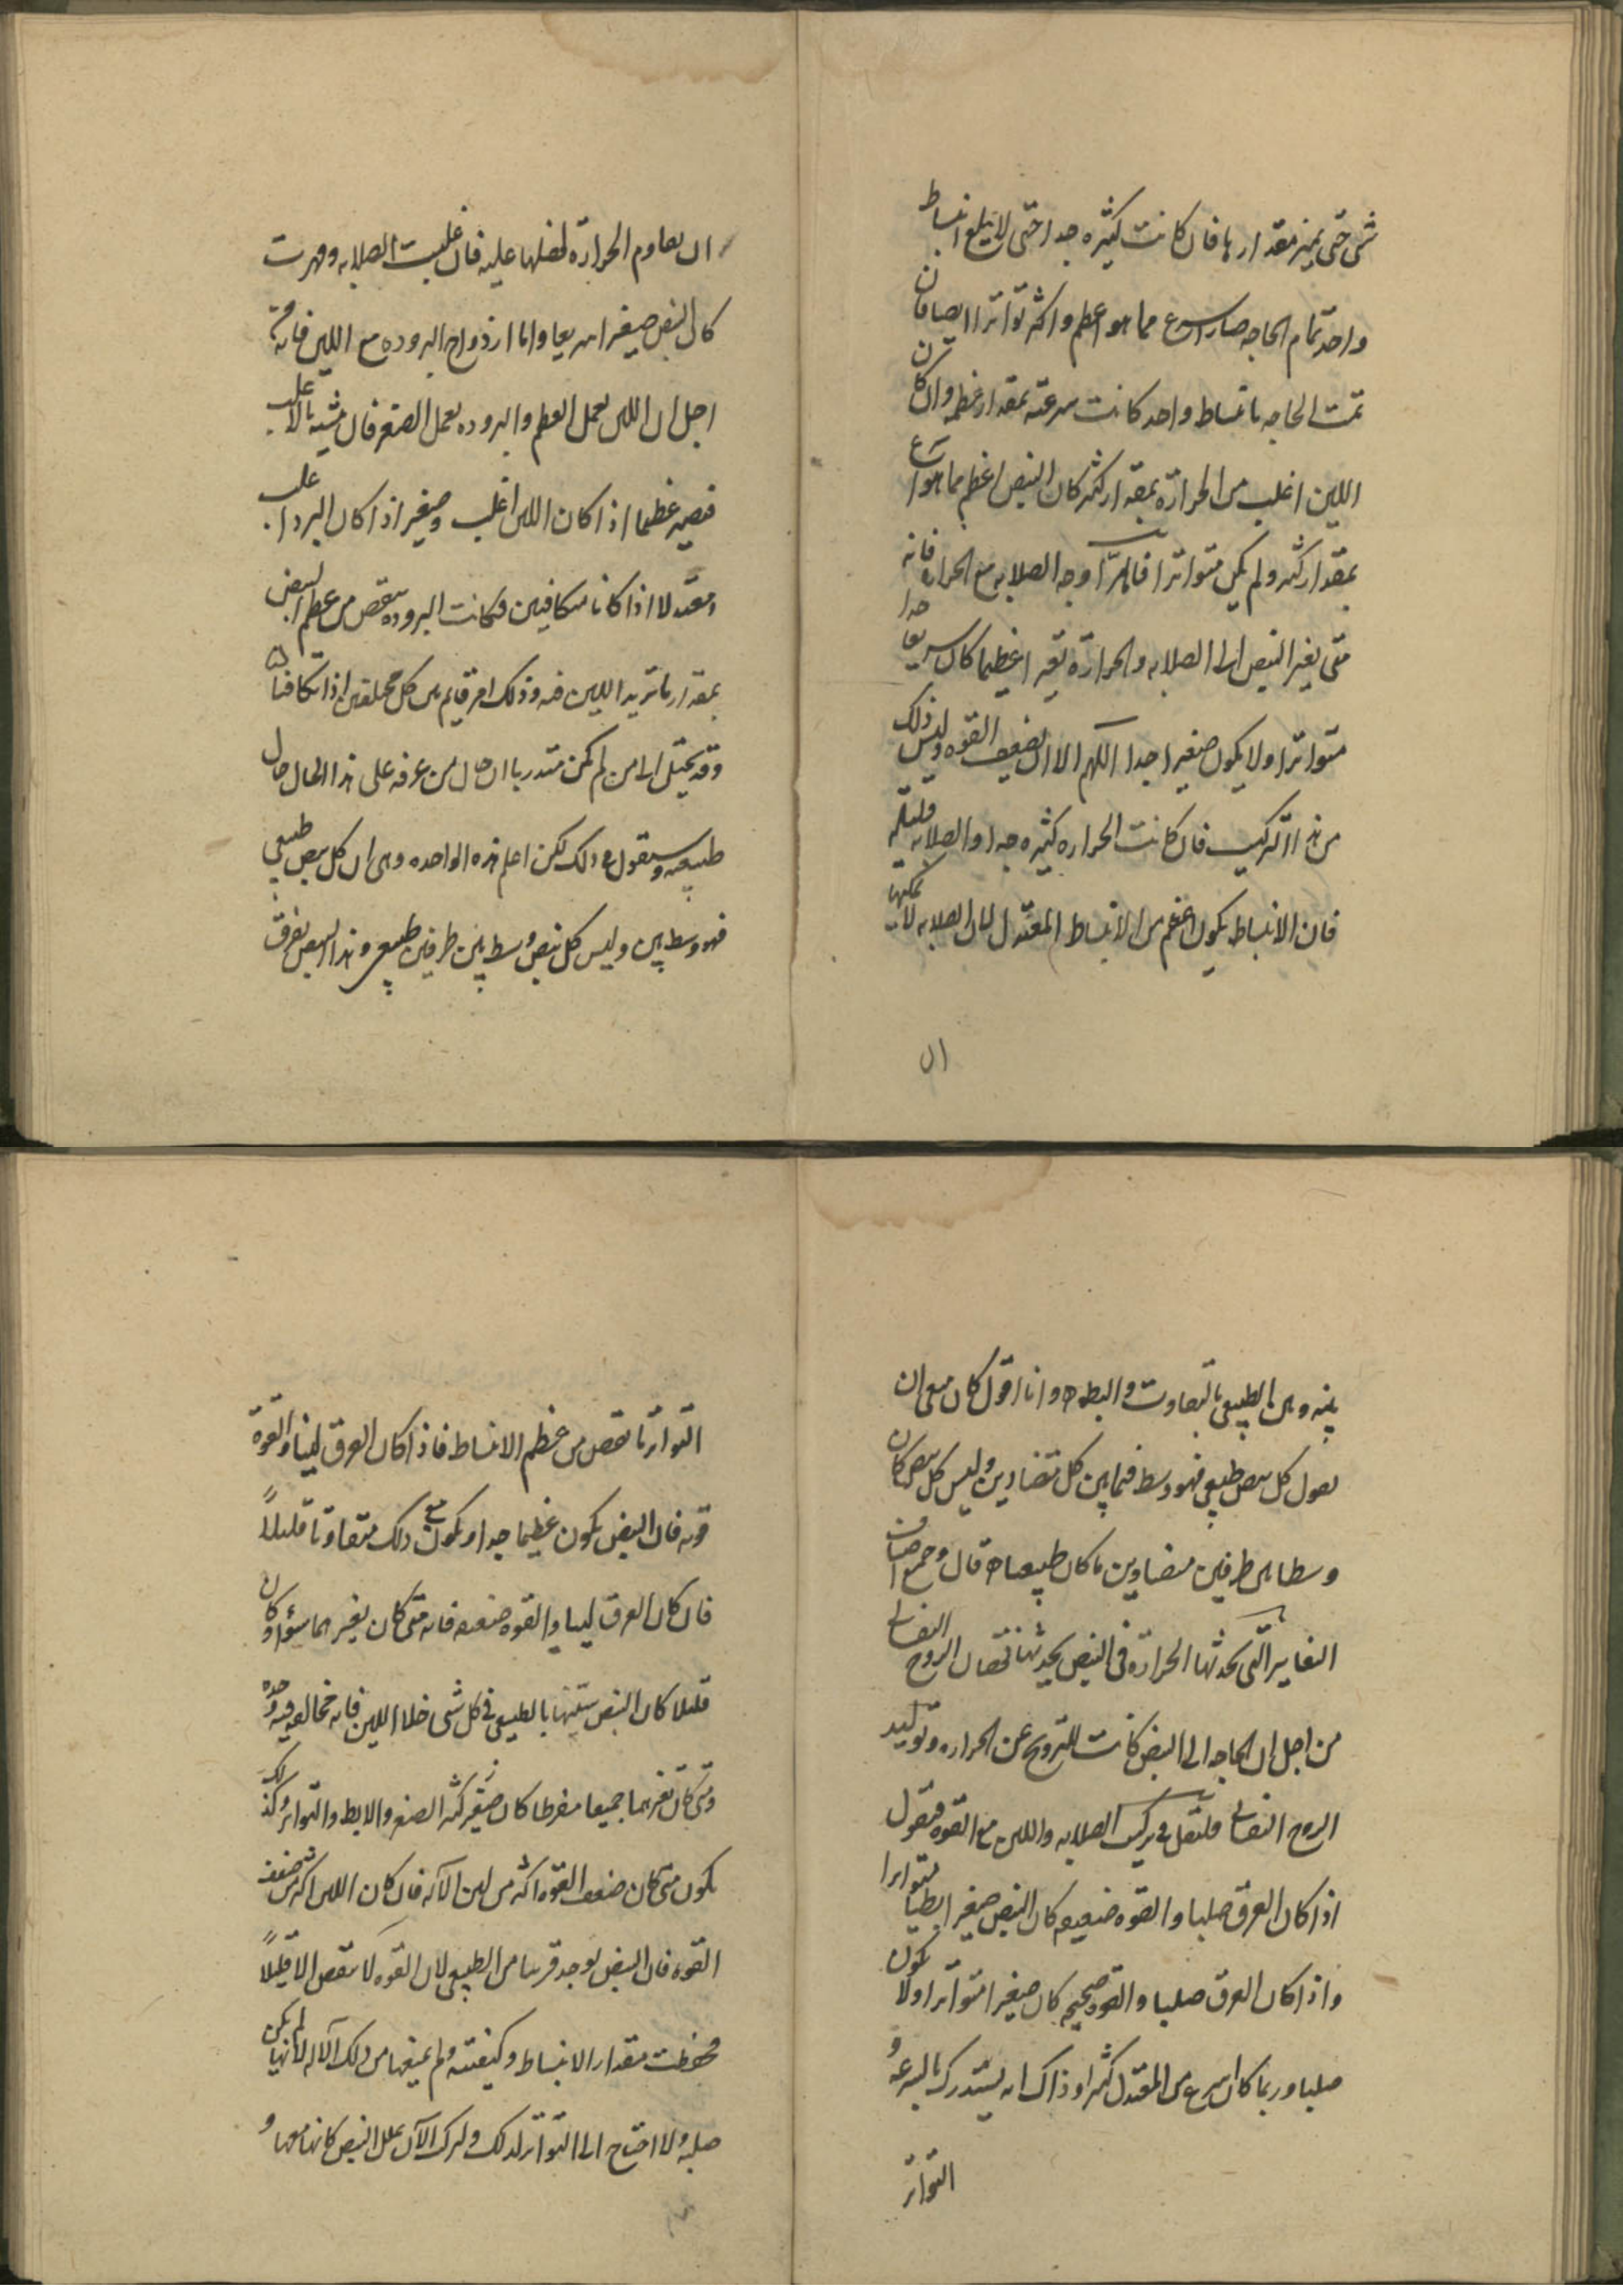 شى حتى يميز مقدارها فان كانت كثيره جدا حتى لا يبلغ انبساط
واحد تمام الحاجه صار اسرع مما هو اعظم واكثر تواترا ايضا فان
تمت الحاجه بانبساط واحد كانت سرعته بمقدار عظمه وان كان
اللين اغلب من الحرارة بمقدار كثير كان النبض اعظم مما هو اسرع
بمقدار كثير ولم يكن متواترا فاما تزاوجه الصلابه مع الحراره فانه
متى يغير النبض الى الصلابه والحرارة تغيرا عظيما كان سريعا جدا
متواترا ولا يكون صغيرا جدا اللهم الا ان تضعف القوه وليس ذلك
من هذا التركيب فان كانت الحراره كثيره جدا والصلابه قليله
فان الانبساط يكون اعظم من الانبساط المعتدل لان الصلابه لا يمكنها
ان
ان يقاوم الحرارة لفضلها عليه فان غلبت الصلابه وقهرت
كان النبض صغيرا سريعا واما ازدواج البروده مع اللين فانه من
اجل ان اللين يعمل العظم والبروده يعمل الصغر فان شبيه بالاغلب
فيصير عظيما اذا كان اللين اغلب وصغيرا اذا كان البرد اغلب
ومعتدلا اذا كانا متكافيين فكانت البروده ينقص من عظم النبض
بمقدار ما تزيد اللين فيه وذلك امر قايم بين كل مختلفين اذا تكافيا
وقد يخيل الى من لم يكن متدربا ان حال من عرفه على هذا الحال حال
طبيعيه وسنقول فى ذلك لكن اعلم هذه الواحده وهى ان كل نبض طبيعى
فهو وسط بين وليس كل نبض وسط بين طرفين طبيعى وهذا النبض يفرق
بينه وبين الطبيعى بالتفاوت والبطء وانا اقول كان معنى ان
يقول كل نبض طبيعى فهو وسط فيما بين كل متضادين وليس كل نبض كان
وسطا بين طرفين متضادين ما كان طبيعيا قال وجميع اصناف
التغايير التى تحدثها الحرارة فى النبض يحدثها نقصان الروح النفسانى
من اجل ان الحاجه الى النبض كانت للترويح عن الحراره وتوليد
الروح النفسانى فلننتقل فى تركيب الصلابه واللين مع القوه فنقول
اذا كان العرق صلبا والقوه ضعيفه كان النبض صغيرا بطيا متواترا
واذا كان العرق صلبا والقوه صحيحه كان صغيرا متواترا ولا يكون
صلبا وربما كان اسرع من المعتدل كثيرا وذاك انه يستدرك بالسرعه و
التواتر
التواتر ما نقص من عظم الانبساط فاذا كان العرق لينا والقوة
قويه فان النبض يكون عظيما جدا ويكون مع ذلك متفاوتا قليلاً
فان كان العرق لينا والقوه ضعيفه فانه متى كان تغيرهما سواء وكان
قليلا كان النبض شبيها بالطبيعى فى كل شى خلا اللين فانه مخالفه فيه وحده
ومتى كان تغيرهما جميعا مفرطا كان صغيرا كثير الصغر والابطا والتواتر وكذلك
يكون متى كان ضعف القوه اكثر من لين الآله فان كان اللين اكثر من ضعف
القوه فان النبض يوجد قريبا من الطبيعى لان القوه لا تنقص الا قليلاً
فحفظت مقدار الانبساط وكيفيته ولم يمنعها من ذلك الآله لانها لم يكن
صلبه ولا احتاج الى التواتر لذلك ولنترك الآن علل النبض كانها معها و